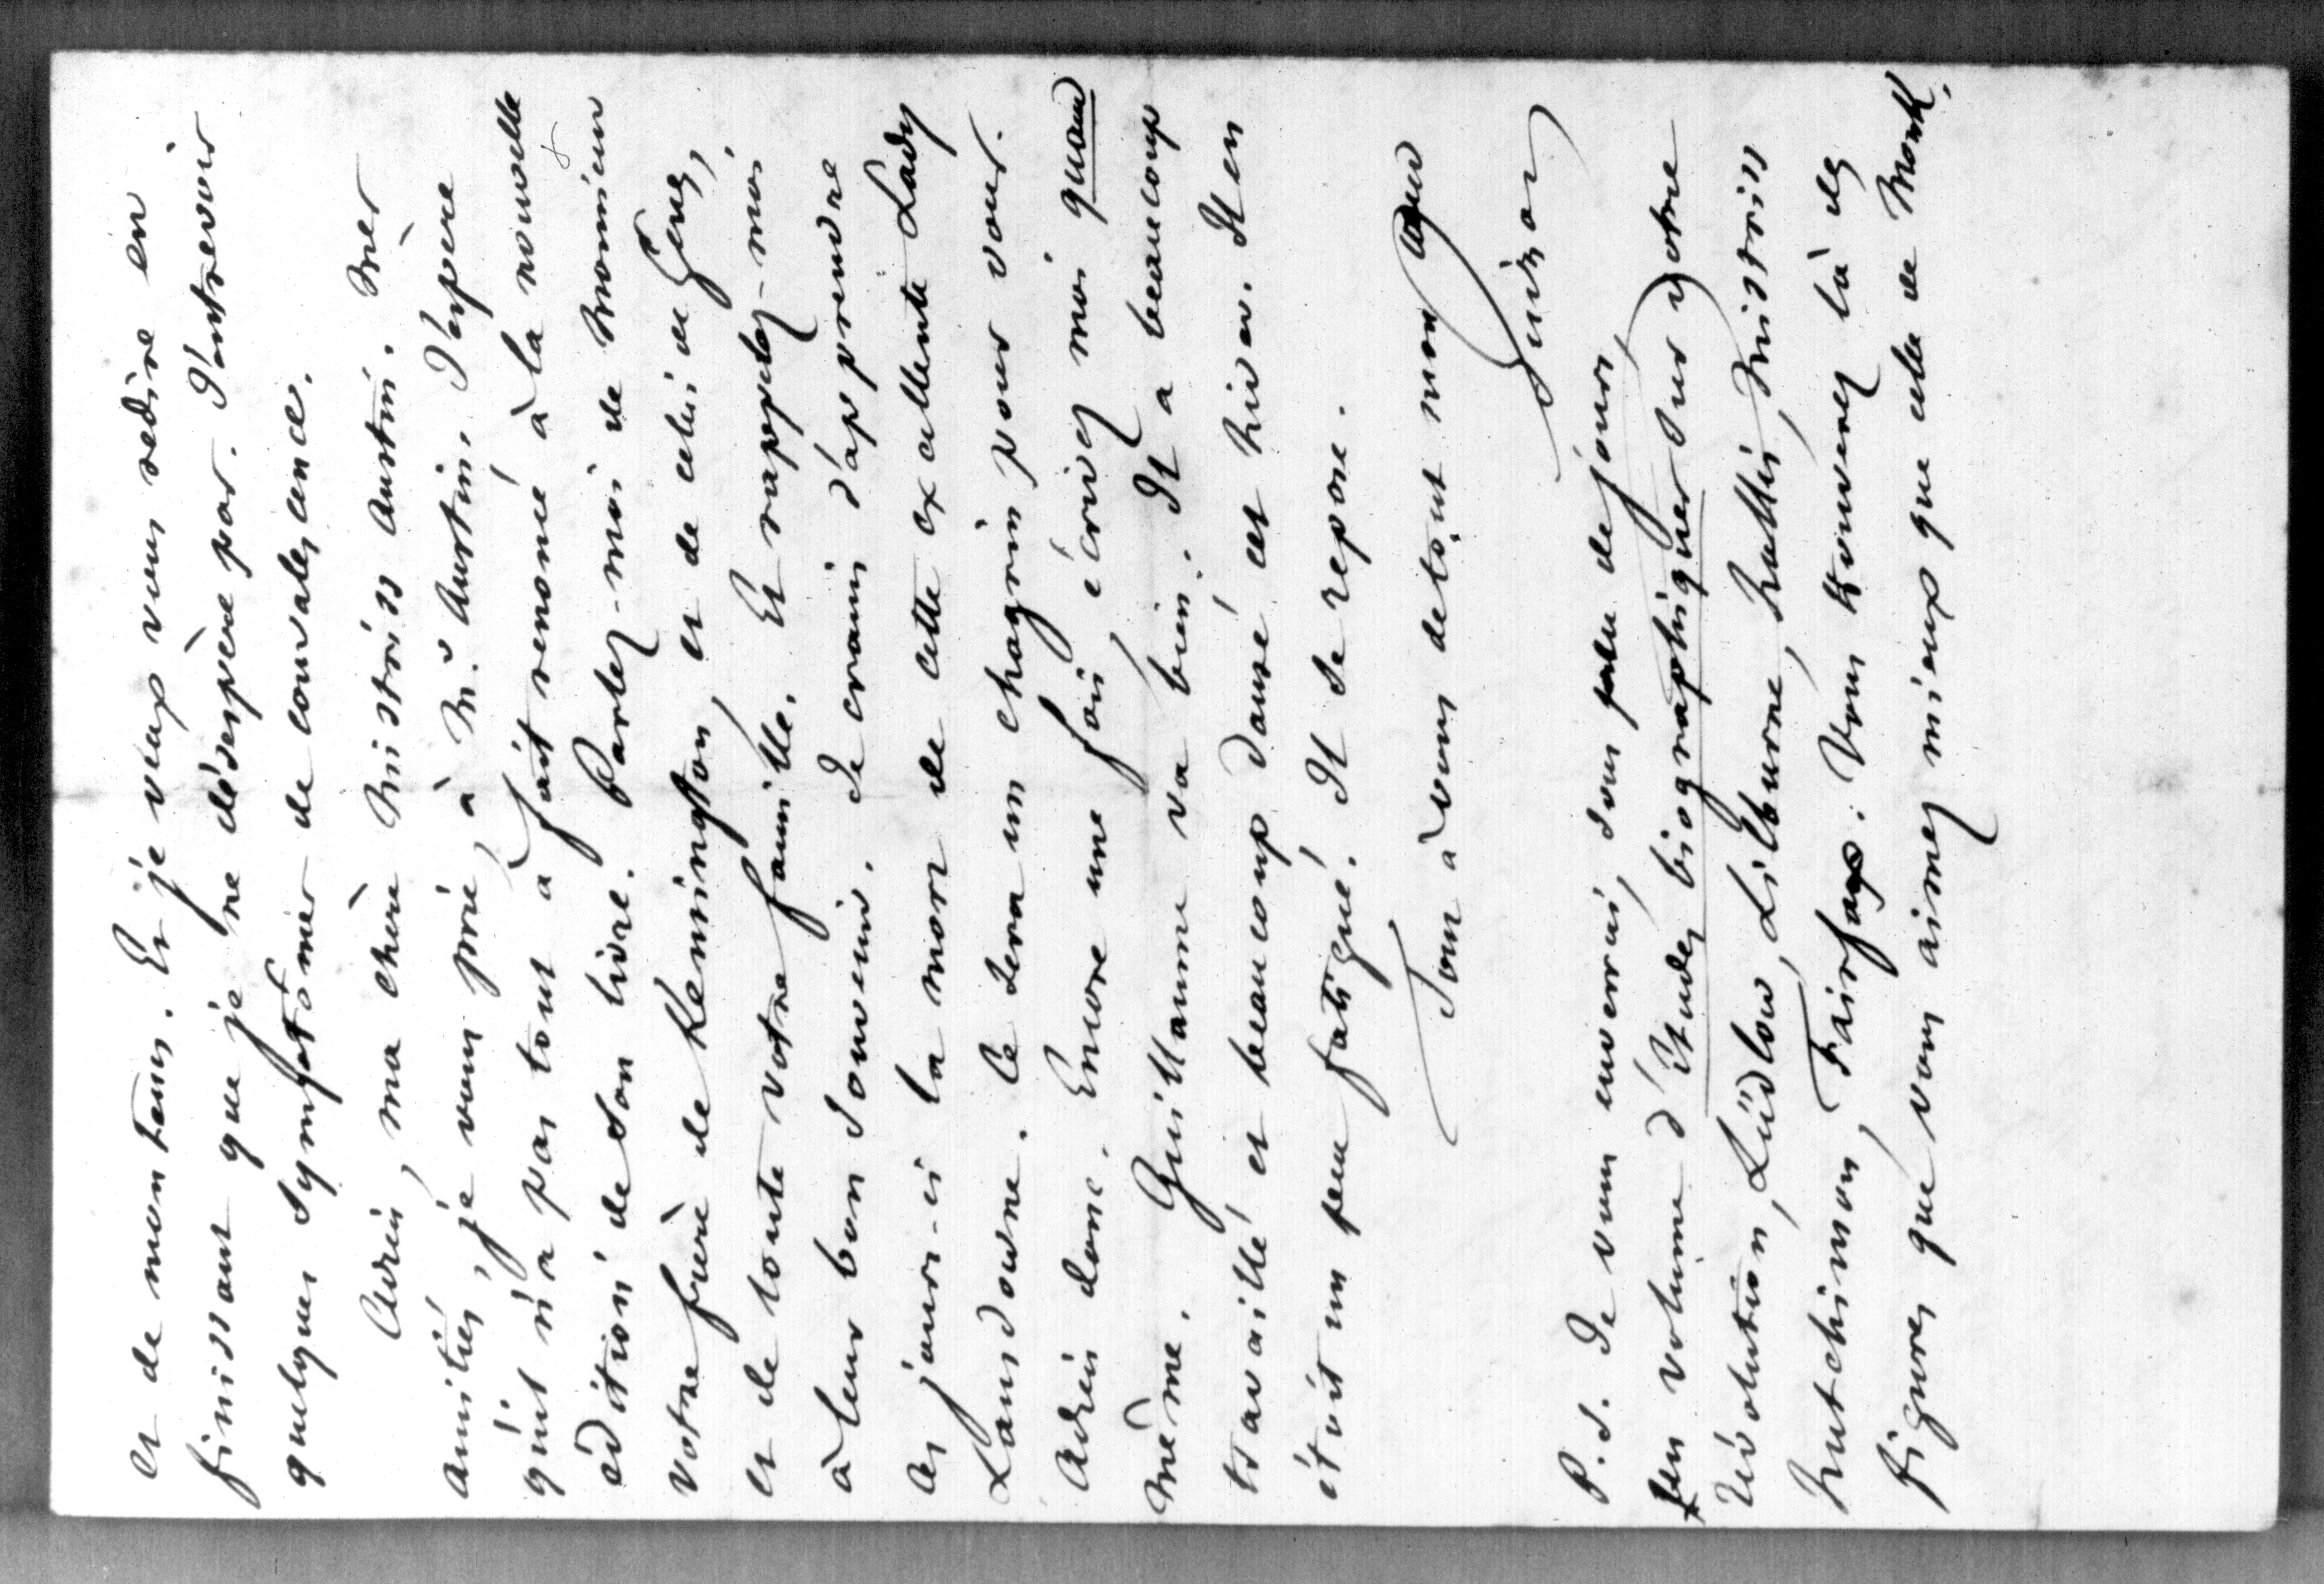 et de mon tems. Et je veux vous redire en
finissant que je ne désespère pas. J'entrevois
quelques symptômes de convalescence.
Adieu, ma chère Mistriss Austin. Mes
amitiés, je vous prie, à Mr. Austin. J'espère
qu'il n'a pas tout à fait renoncé à la nouvelle
édition de son livre. Parlez-moi de Monsieur
votre frère de Kensington, et de celui de Gènes,
et de toute votre famille. Et rappelez-moi
à leur bon souvenir. Je crains d'apprendre
ces jours-ci la mort de cette excellente Lady
Lansdowne. Ce sera un chagrin pour vous.
Adieu donc. Encore une fois, écrivez moi quand
même. Guillaume va bien. Il a beaucoup
travaillé et beaucoup dansé cet hiver. Il en
étoit un peu fatigué. Il se repose.
Tout à vous de tout mon coeur
Guizot
P.S. Je vous enverrai, sous peu de jours,
un volume d'études biographiques sur votre
Révolution, Ludlow, Lilburne, Hollis, Mistriss
Hutchinson, Fairfax. Vous trouverez là des
figures que vous aimez mieux que celle de Monk.